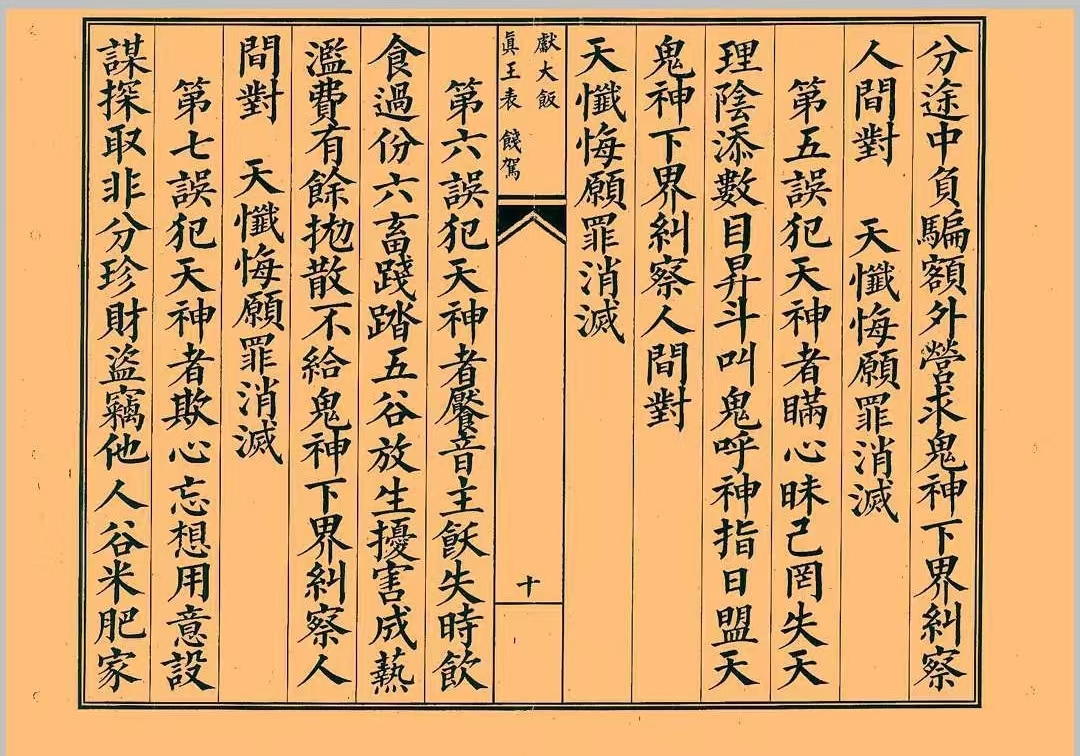 分途中負騙額外營求鬼神下界糾察
人間對 天懺悔願罪消滅
第五誤犯天神者瞞心昧己罔失天
理陰添數目昇斗叫鬼呼神指日盟天
鬼神下界糾察人間對
天懺悔願罪消滅
獻大飯
眞王表 餞駕
十
第六誤犯天神者饜音主飫失時飲
食過份六畜踐踏五谷放生擾害成熟
濫費有餘拋散不給鬼神下界糾察人
間對 天懺悔願罪消滅
第七誤犯天神者欺心忘想用意設
謀探取非分珍財盜竊他人谷米肥家